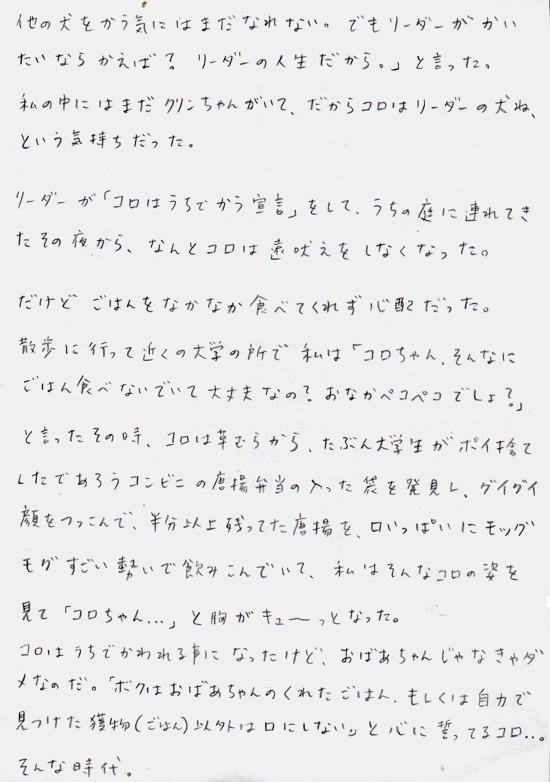 他の犬をかう気にはまだなれない。でもリーダーがかい
たいならかえば？リーダーの人生だから。」と言った。
私の中にはまだクリンちゃんがいて、だからコロはリーダーの犬ね、
という気持ちだった。
リーダーが「コロはうちでかう宣言」をして、うちの庭に連れてき
たその夜から、なんとコロは遠吠えをしなくなった。
だけどごはんをなかなか食べてくれず心配だった。
散歩に行って近くの大学の所で私は「コロちゃん、そんなに
ごはん食べないでいて大丈夫なの？おなかペコペコでしょ？」
と言ったその時、コロは草むらから、たぶん大学生がポイ捨て
したであろうコンビニの唐揚弁当の入った袋を発見し、グイグイ
顔をつっこんで、半分以上残ってた唐揚を、口いっぱいにモッグ
モグすごい勢いで飲みこんでいて、私はそんなコロの姿を
見て「コロちゃん...」と胸がキュ〜っとなった。
コロはうちでかわれる事になったけど、おばあちゃんじゃなきゃダ
メなのだ。「ボクはおばあちゃんのくれたごはん、もしくは自力で
見つけた獲物(ごはん)以外は口にしない」と心に誓ってるコロ...。
そんな時代。